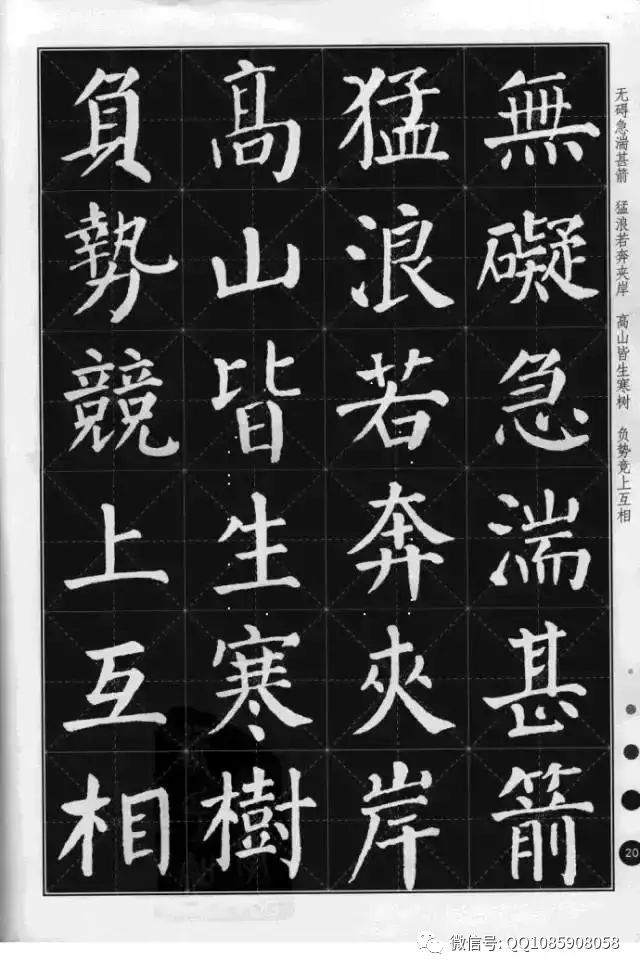 無礙急湍甚箭
猛浪若奔夾岸
高山皆生寒樹
負勢競上互相
无碍急湍甚箭 猛浪若奔夹岸 高山皆生寒树 负势竞上互相
20
微信号: QQ1085908058